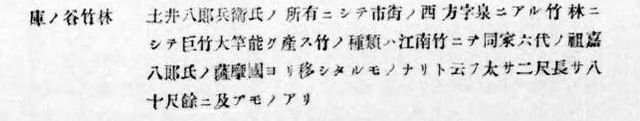 庫ノ谷竹林
土井八郎兵衛氏ノ所有ニシテ市街ノ西方字泉ニアル竹林ニ
シテ巨竹大筆能ク産ス竹ノ種類ハ江南竹ニテ同家六代ノ祖嘉
八郎氏ノ薩摩國ヨリ移シタルモノナリト云フ太サ二尺長サ八
十尺餘ニ及アモノアリ